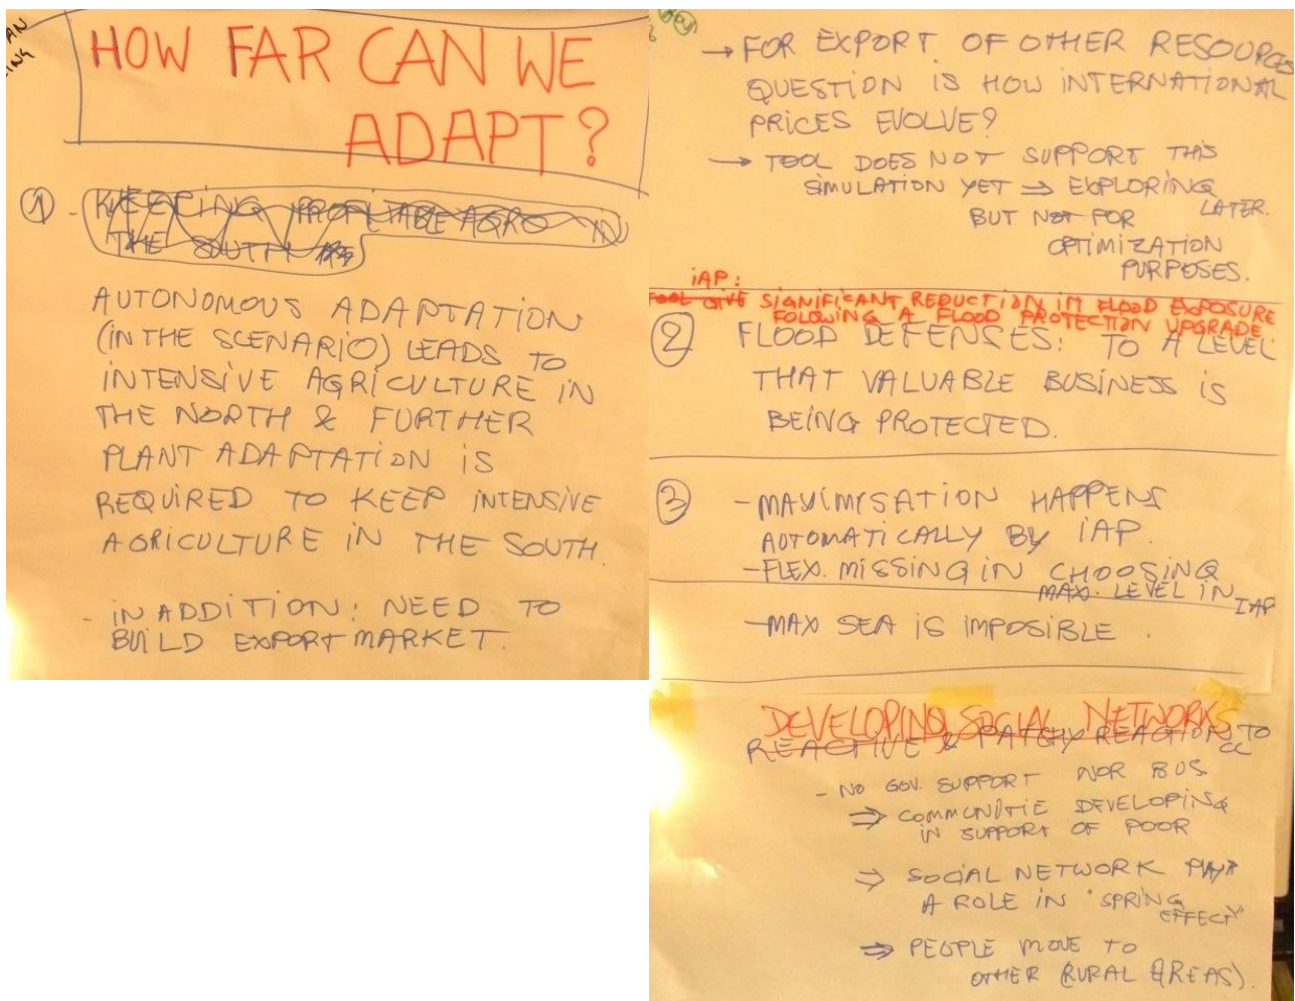 HOW FAR CAN WE
ADAPT?
① - KEEPING PROFITABLE AGRO IN
THE SOUTH
AUTONOMOUS ADAPTATION
(IN THE SCENARIO) LEADS TO
INTENSIVE AGRICULTURE IN
THE NORTH & FURTHER
PLANT ADAPTATION IS
REQUIRED TO KEEP INTENSIVE
AGRICULTURE IN THE SOUTH.
- IN ADDITION: NEED TO
BUILD EXPORT MARKET.
→ FOR EXPORT OF OTHER RESOURCES
QUESTION IS HOW INTERNATIONAL
PRICES EVOLVE?
→ TOOL DOES NOT SUPPORT THIS
SIMULATION YET ⇒ EXPLORING
LATER.
BUT NOT FOR
OPTIMIZATION
PURPOSES.
iAP:
TOOL GIVE SIGNIFICANT REDUCTION IN FLOOD EXPOSURE
FOLOWING A FLOOD PROTECTION UPGRADE
② FLOOD DEFENSES: TO A LEVEL
THAT VALUABLE BUSINESS IS
BEING PROTECTED.
③ - MAXIMISATION HAPPENS
AUTOMATICALLY BY iAP.
- FLEX. MISSING IN CHOOSING
MAX. LEVEL IN IAP
- MAX SEA IS IMPOSIBLE.
DEVELOPING SOCIAL NETWORKS
REACTIVE & PATCHY REACTION TO
CC
- NO GOV. SUPPORT NOR BUS.
⇒ COMMUNITIE DEVELOPING
IN SUPPORT OF POOR
⇒ SOCIAL NETWORK PLAY
A ROLE IN "SPRING
EFFECT"
⇒ PEOPLE MOVE TO
OTHER (RURAL AREAS).